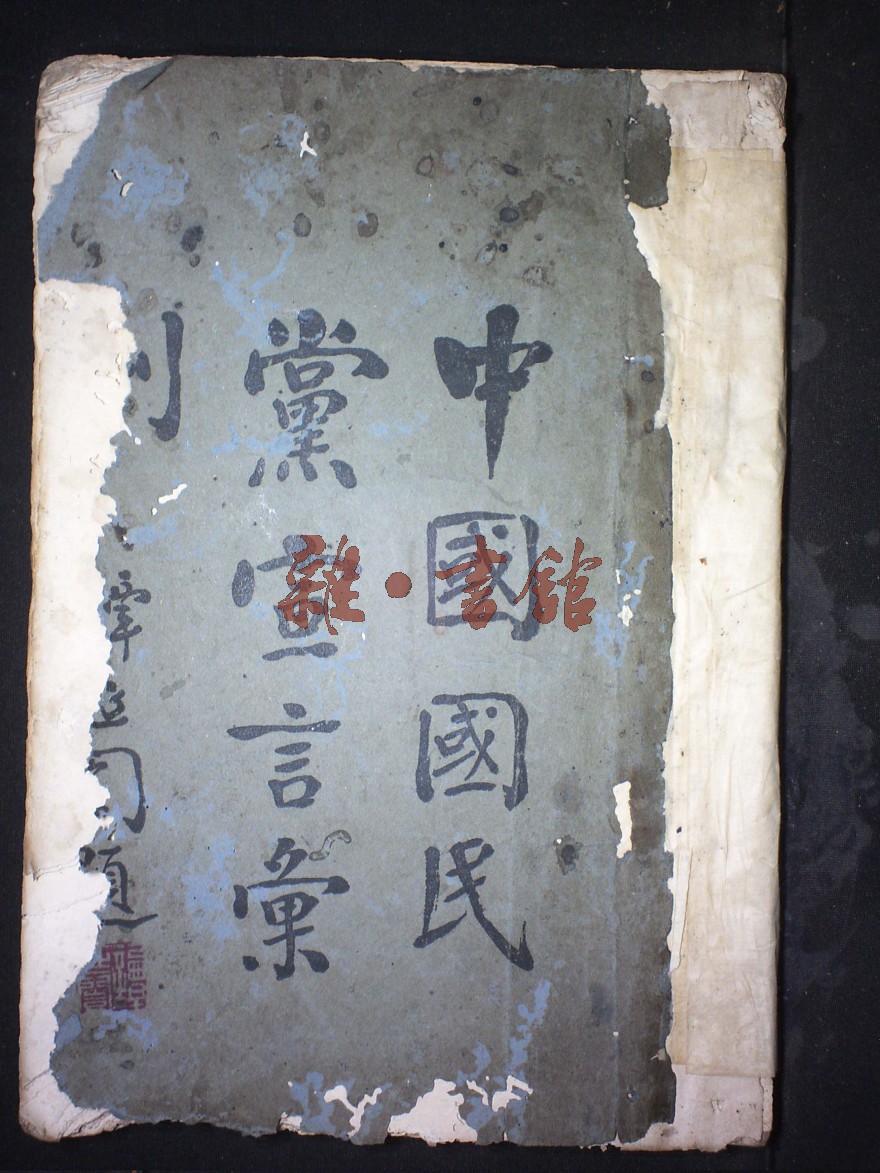 中國國民
黨宣言彙
刊
題
雜·書館